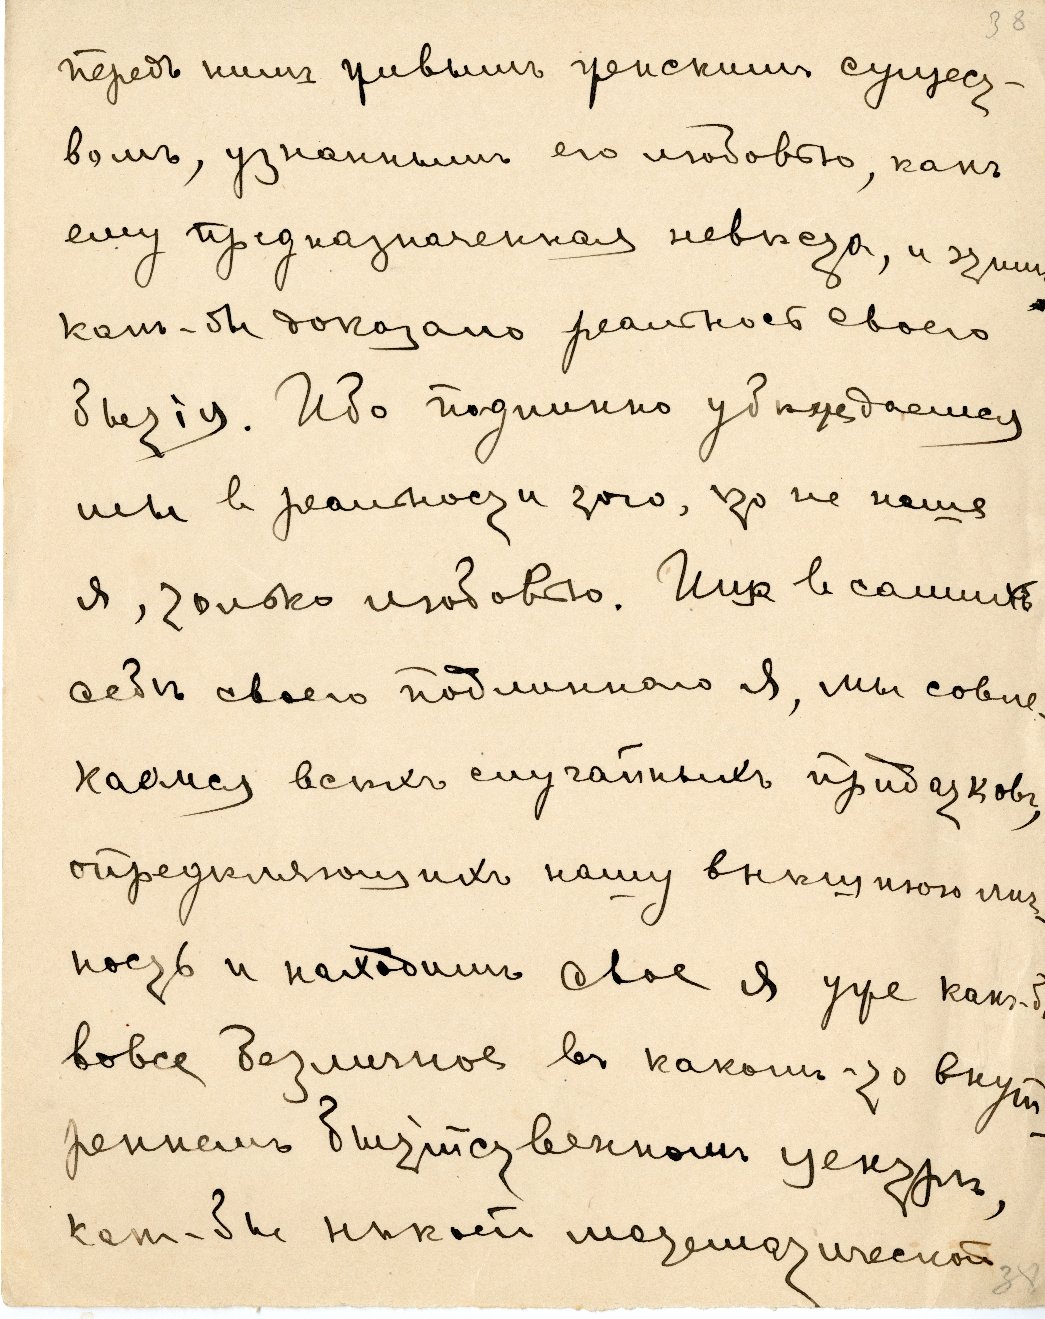 38
передъ нимъ живымъ женскимъ сущест-
вомъ, узнаннымъ его любовью, какъ
ему предназначенная невѣста, и этимъ
какъ-бы доказало реальность своего
бытія. Ибо подлинно убѣждаемся
мы въ реальности того, что не наше
я, только любовью. Ища въ самихъ
себѣ своего подлиннаго я, мы совле-
каемся всѣхъ случайныхъ придатковъ,
опредѣляющихъ нашу внѣшнюю лич-
ность и находимъ свое я уже какъ-бы
вовсе безличное въ какомъ-то внут-
реннемъ бытійственномъ центрѣ,
какъ-бы нѣкоей математической
38